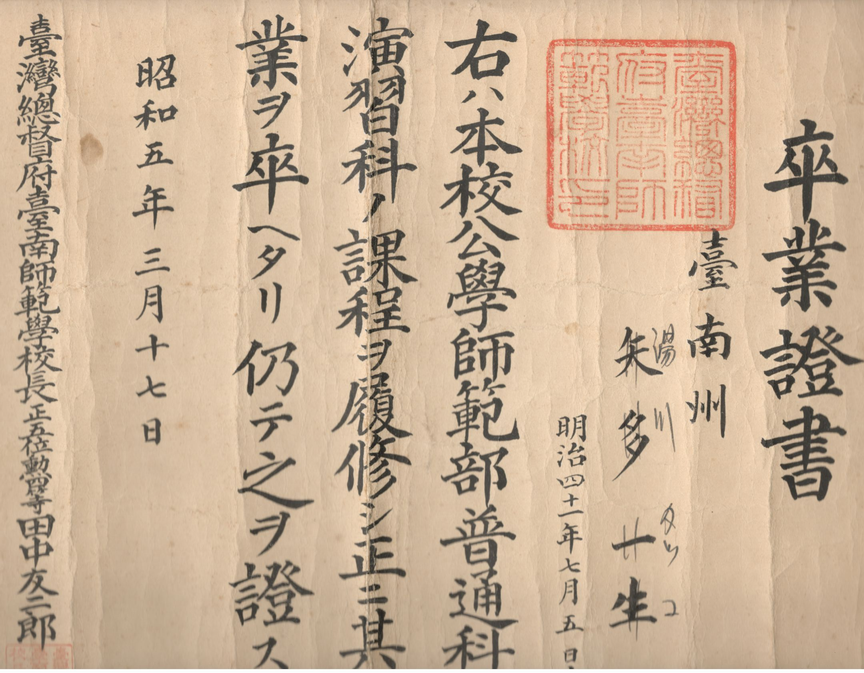 卒業證書
臺南州
湯川
矢多一生
明治四十一年七月五日
臺灣總督
府臺南師
範學校印
右ハ本校公學師範部普通科
演習科ノ課程ヲ履修シ正ニ其
業ヲ卒ヘタリ仍テ之ヲ證ス
昭和五年三月十七日
臺灣總督府臺南師範學校長正五位勲四等田中友二郎